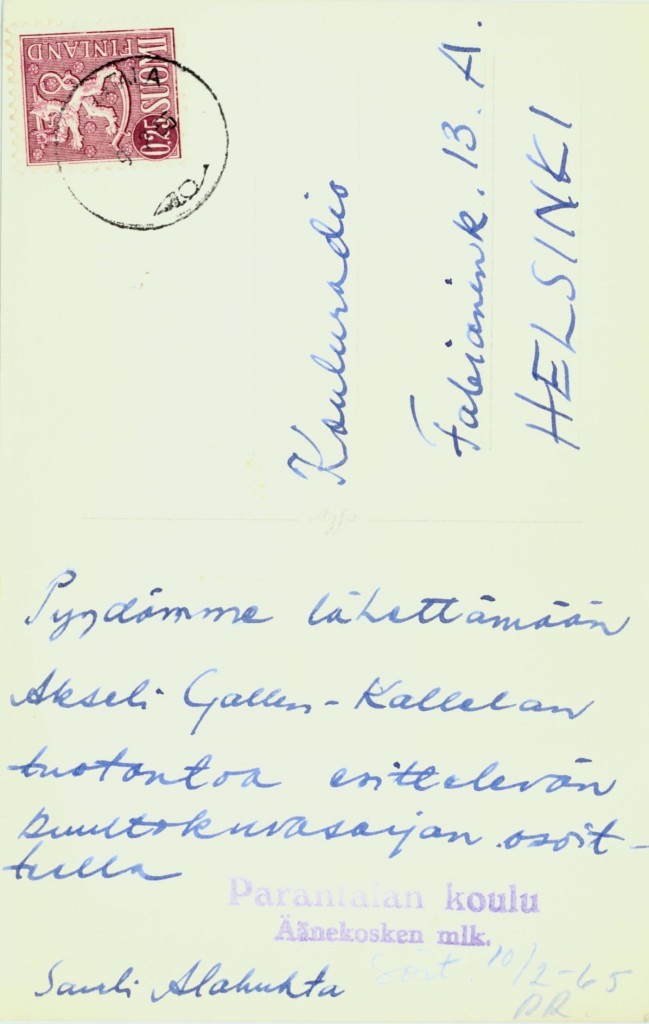 SUOMI
FINLAND
0,25
Kouluradio
Fabianink. 13. A.
HELSINKI
Pyydämme lähettämään
Akseli Gallen-Kallelan
tuotantoa esittelevän
kuultokuvasarjan osoit-
teella
Parantalan koulu
Äänekosken mlk.
Sauli Alahuhta
10/2-65